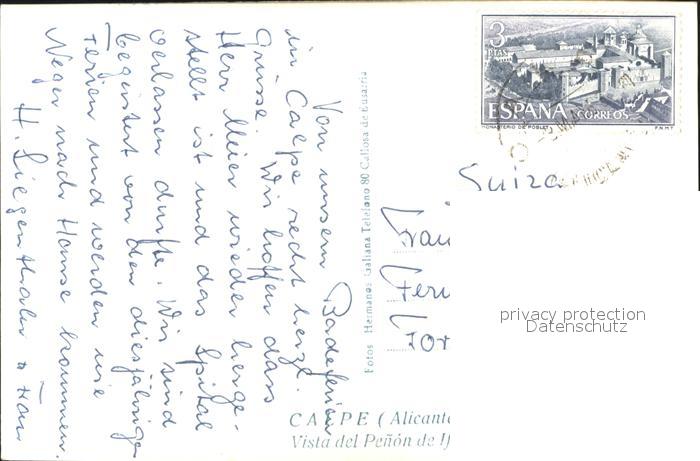 Von unsern Badeferien
in Calpe recht herzl.
Grüsse. Wir hoffen dass
Herr Meier wieder herge-
stellt ist und das Spital
verlassen durfte. Wir sind
begeistert von den diesjährigen
Ferien und werden wie
Neger nach Hause kommen.
H. Siegenthaler + Frau
Fotos Hermanos Galiana Telefono 80 Callosa de Ensarriá
3
PTAS
ESPAÑA CORREOS
MONASTERIO DE POBLET F.N.M.T.
Suiza
privacy protection
Datenschutz
CALPE (Alicante
Vista del Peñón de If